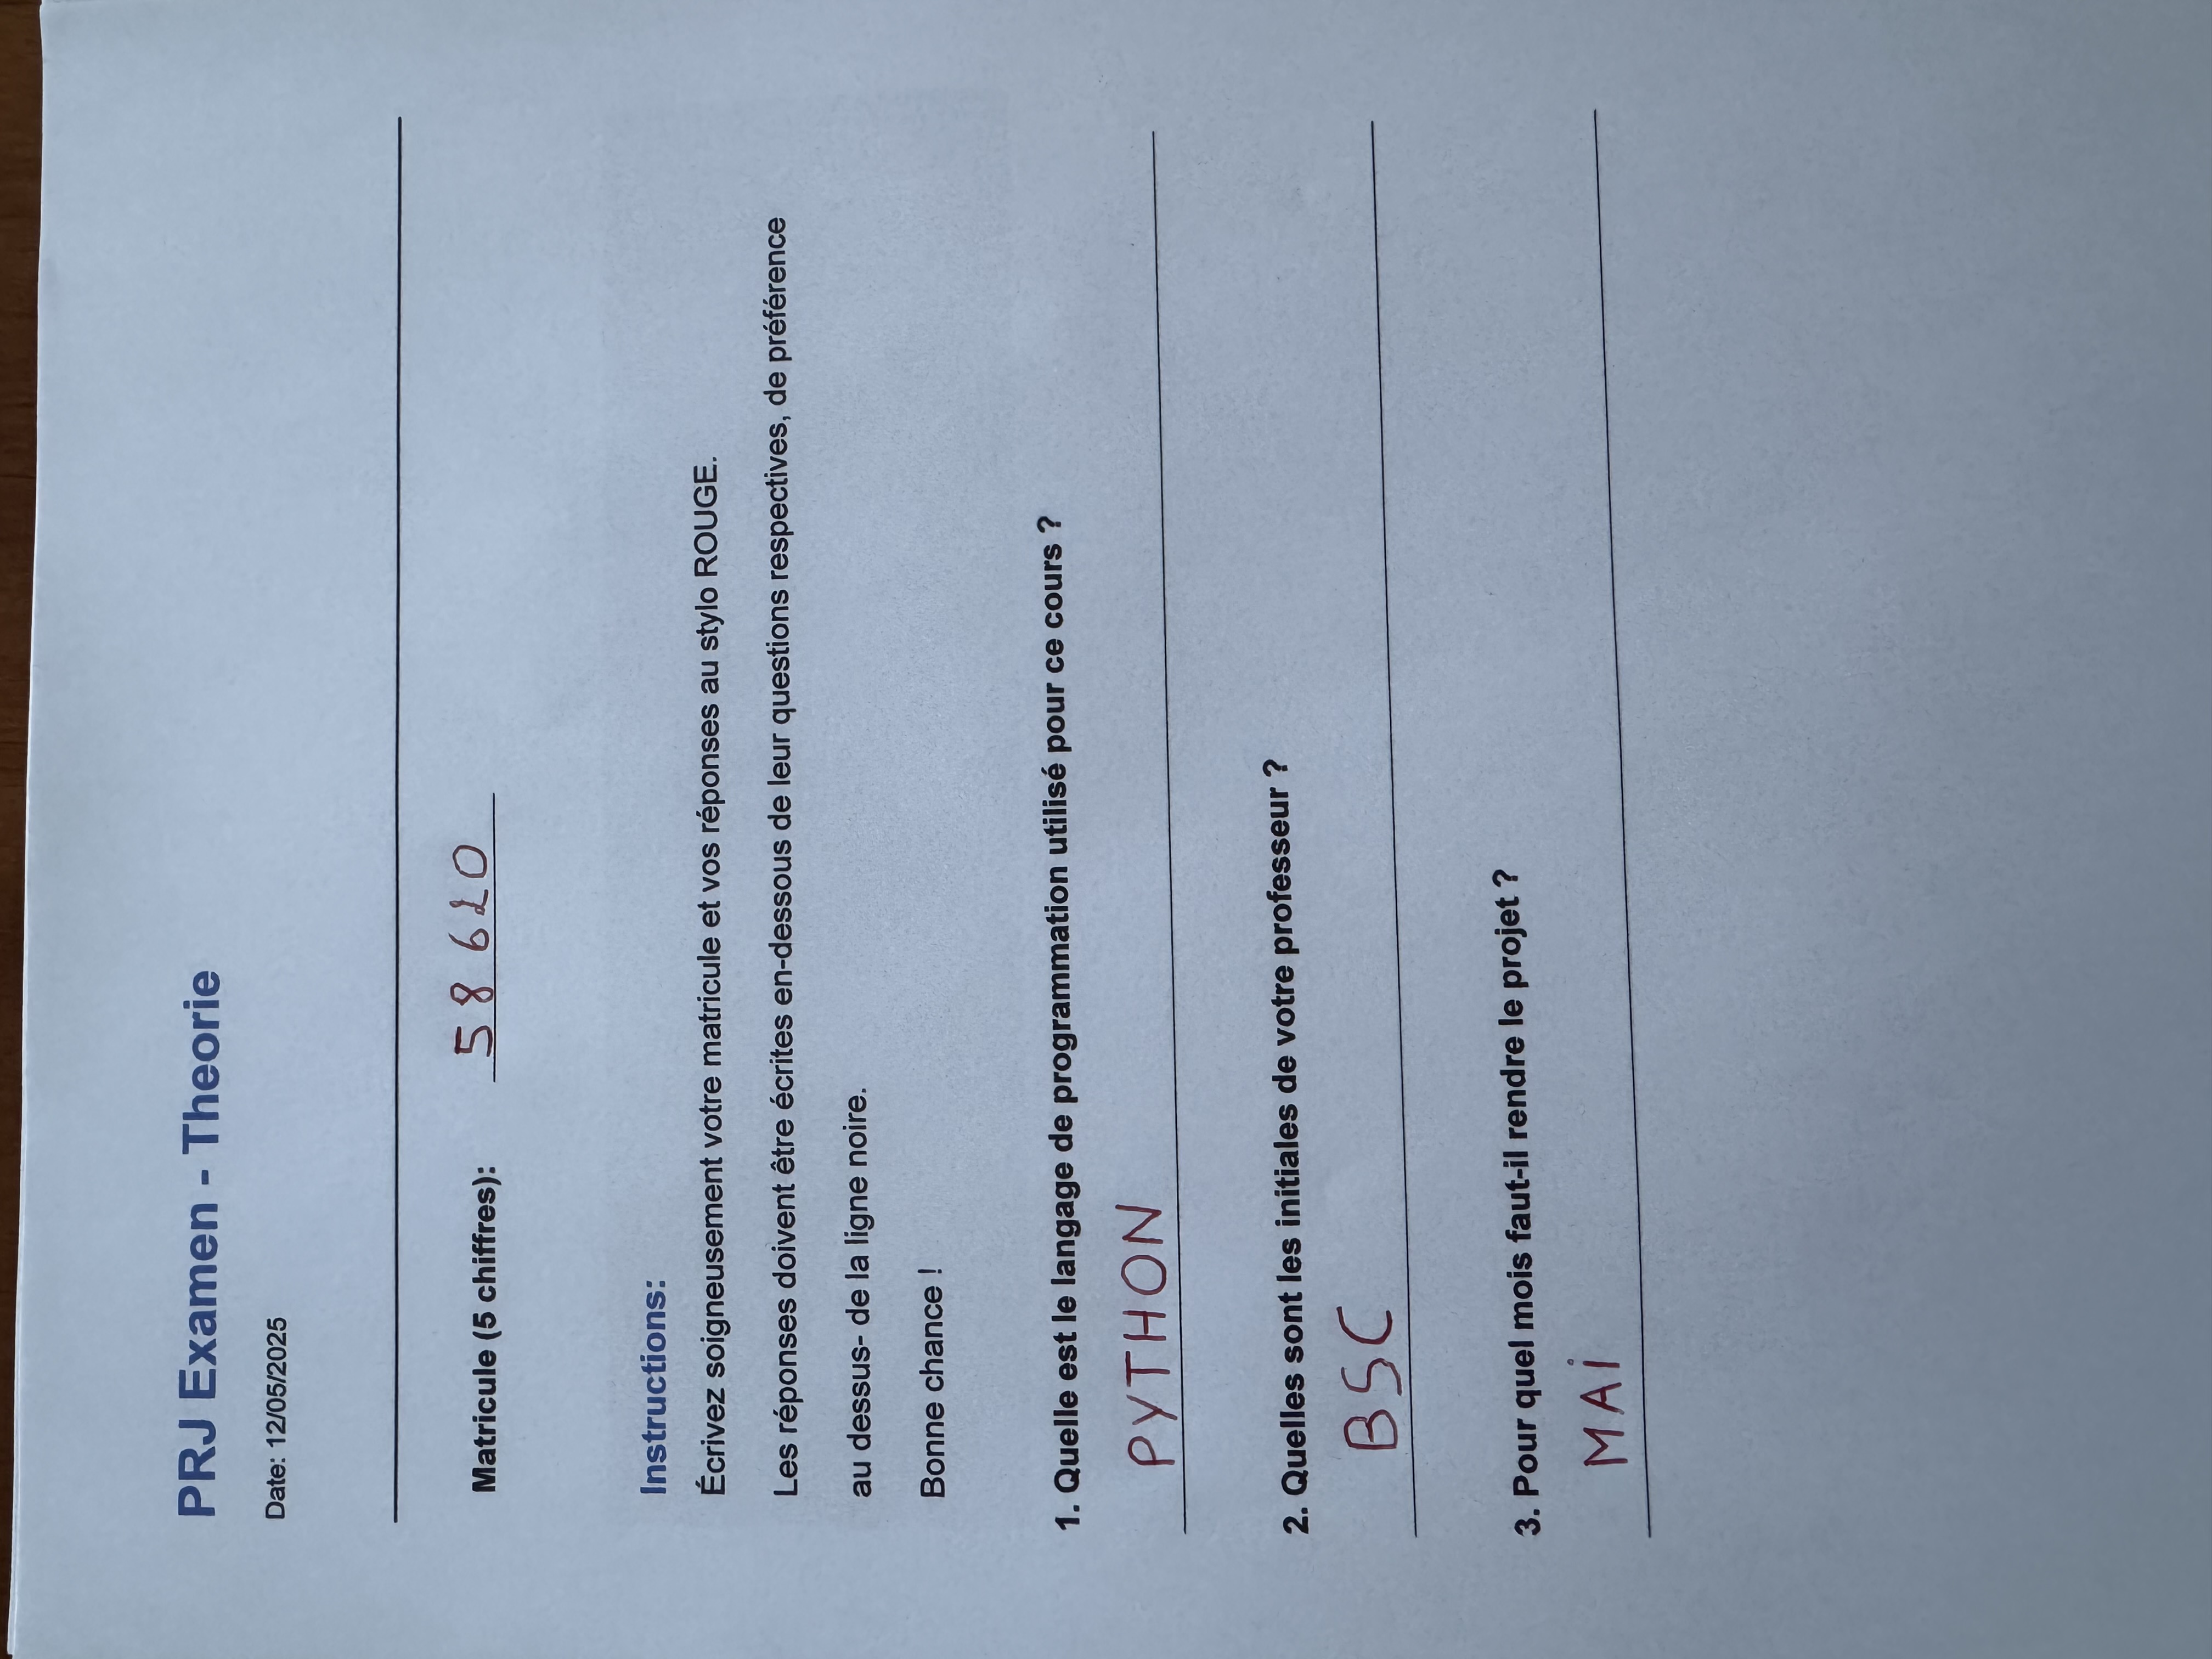 PRJ Examen - Theorie
Date: 12/05/2025
Matricule (5 chiffres): 58620
Instructions:
Écrivez soigneusement votre matricule et vos réponses au stylo ROUGE.
Les réponses doivent être écrites en-dessous de leur questions respectives, de préférence
au dessus- de la ligne noire.
Bonne chance !
1. Quelle est le langage de programmation utilisé pour ce cours ?
PYTHON
2. Quelles sont les initiales de votre professeur ?
BSC
3. Pour quel mois faut-il rendre le projet ?
MAi